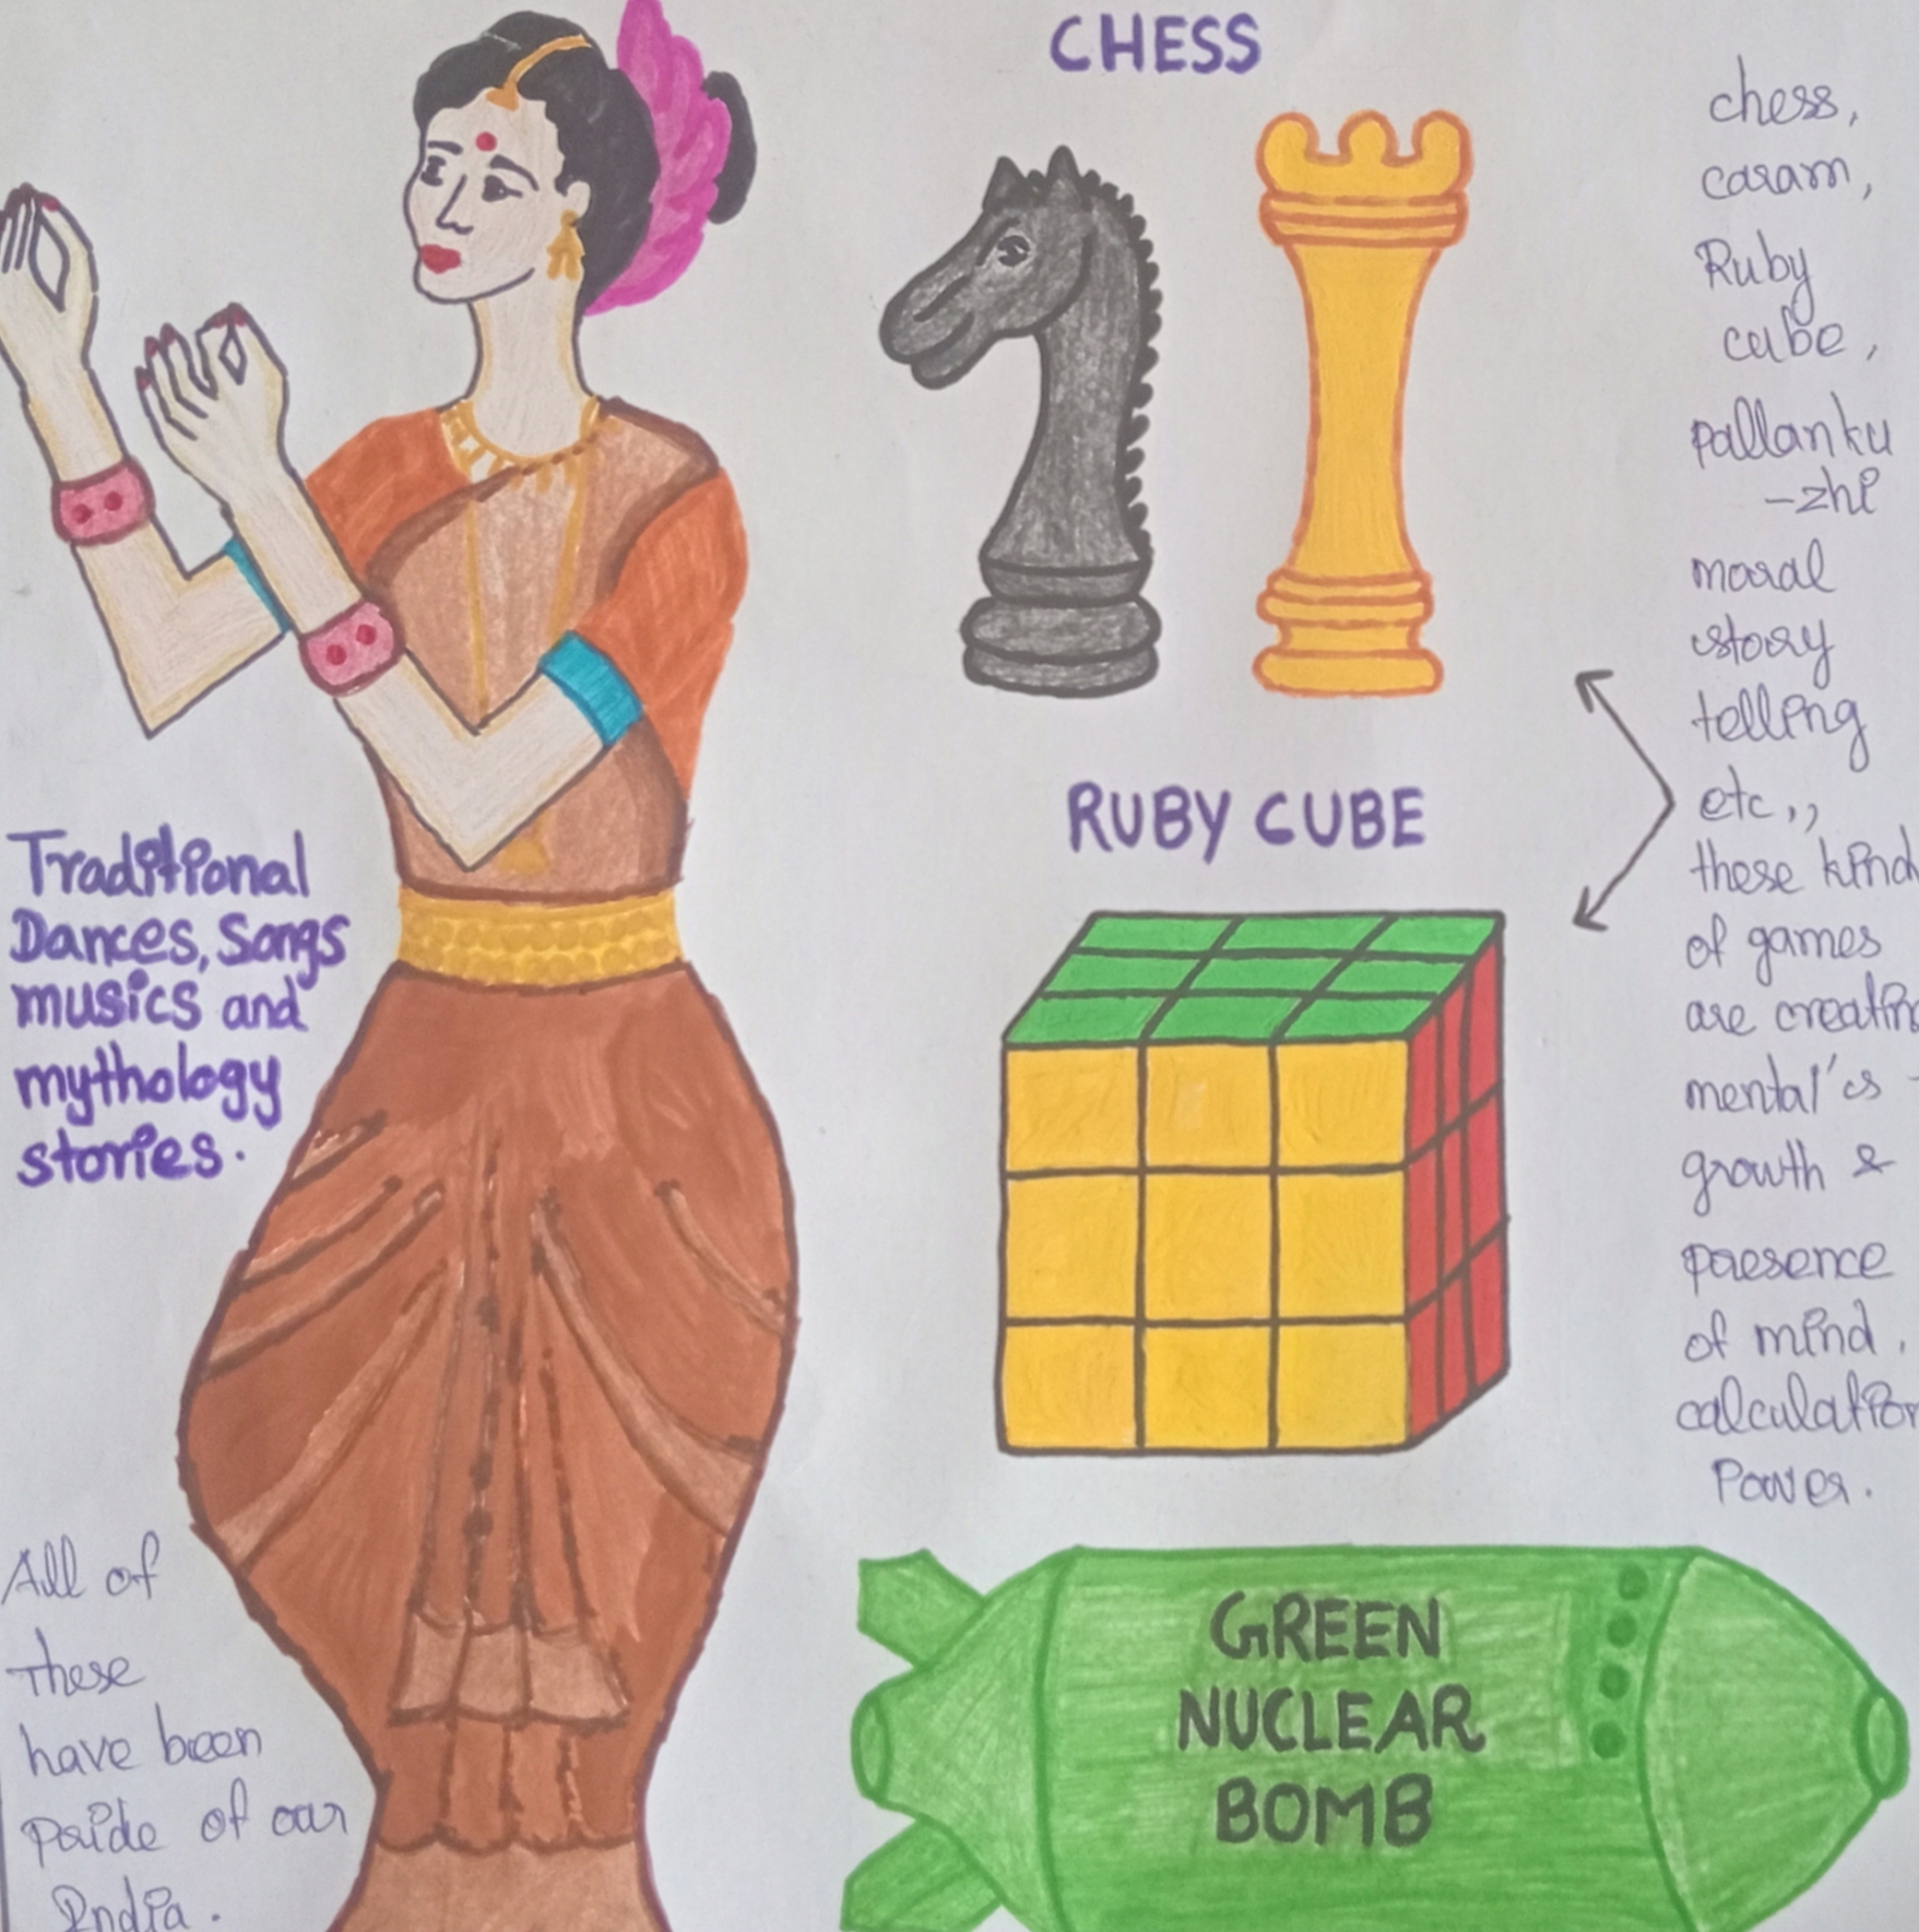 CHESS
chess,
caram,
Ruby
cube,
pallanku
-zhi
moral
story
telling
etc,,
these kind
of games
are creating
mental's -
growth &
presence
of mind,
calculation
Power.
RUBY CUBE
Traditional
Dances, Songs
musics and
mythology
stories.
All of
These
have been
pride of our
India.
GREEN
NUCLEAR
BOMB